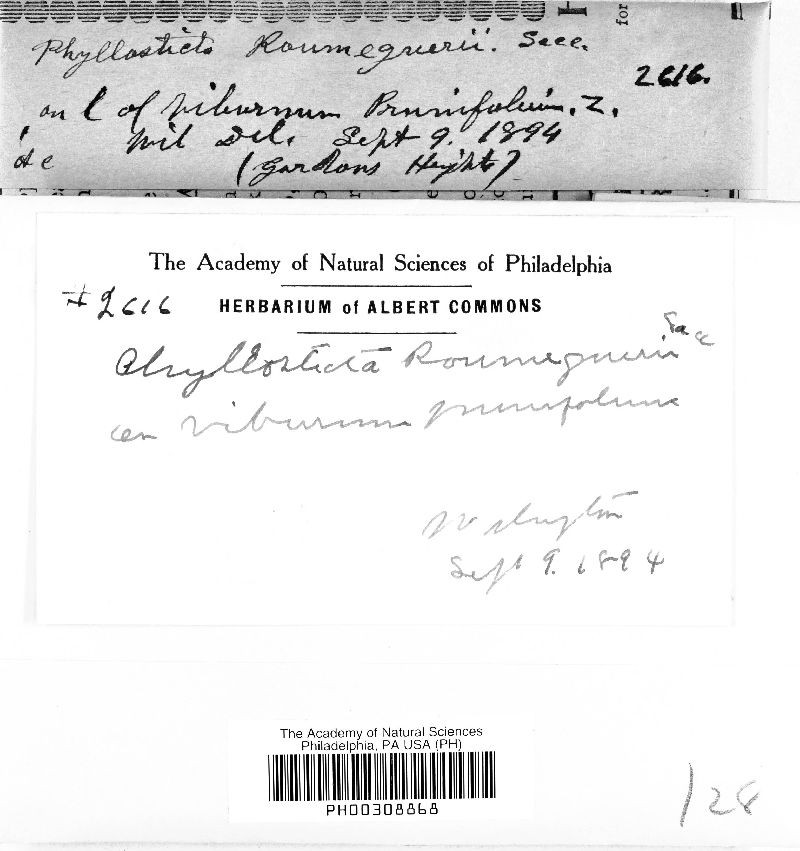 for
Phyllosticta Roumeguerii. Sacc.
2616.
on l of Viburnum Prunifolium. L.
Wil Del. Sept 9. 1894
(Gordons Heights)
The Academy of Natural Sciences of Philadelphia
#2616
HERBARIUM of ALBERT COMMONS
Phyllosticta Roumeguerii Sacc
on Viburnum prunifolium
Wilmington
Sept 9. 1894
The Academy of Natural Sciences
Philadelphia, PA USA (PH)
PH00308868
/28